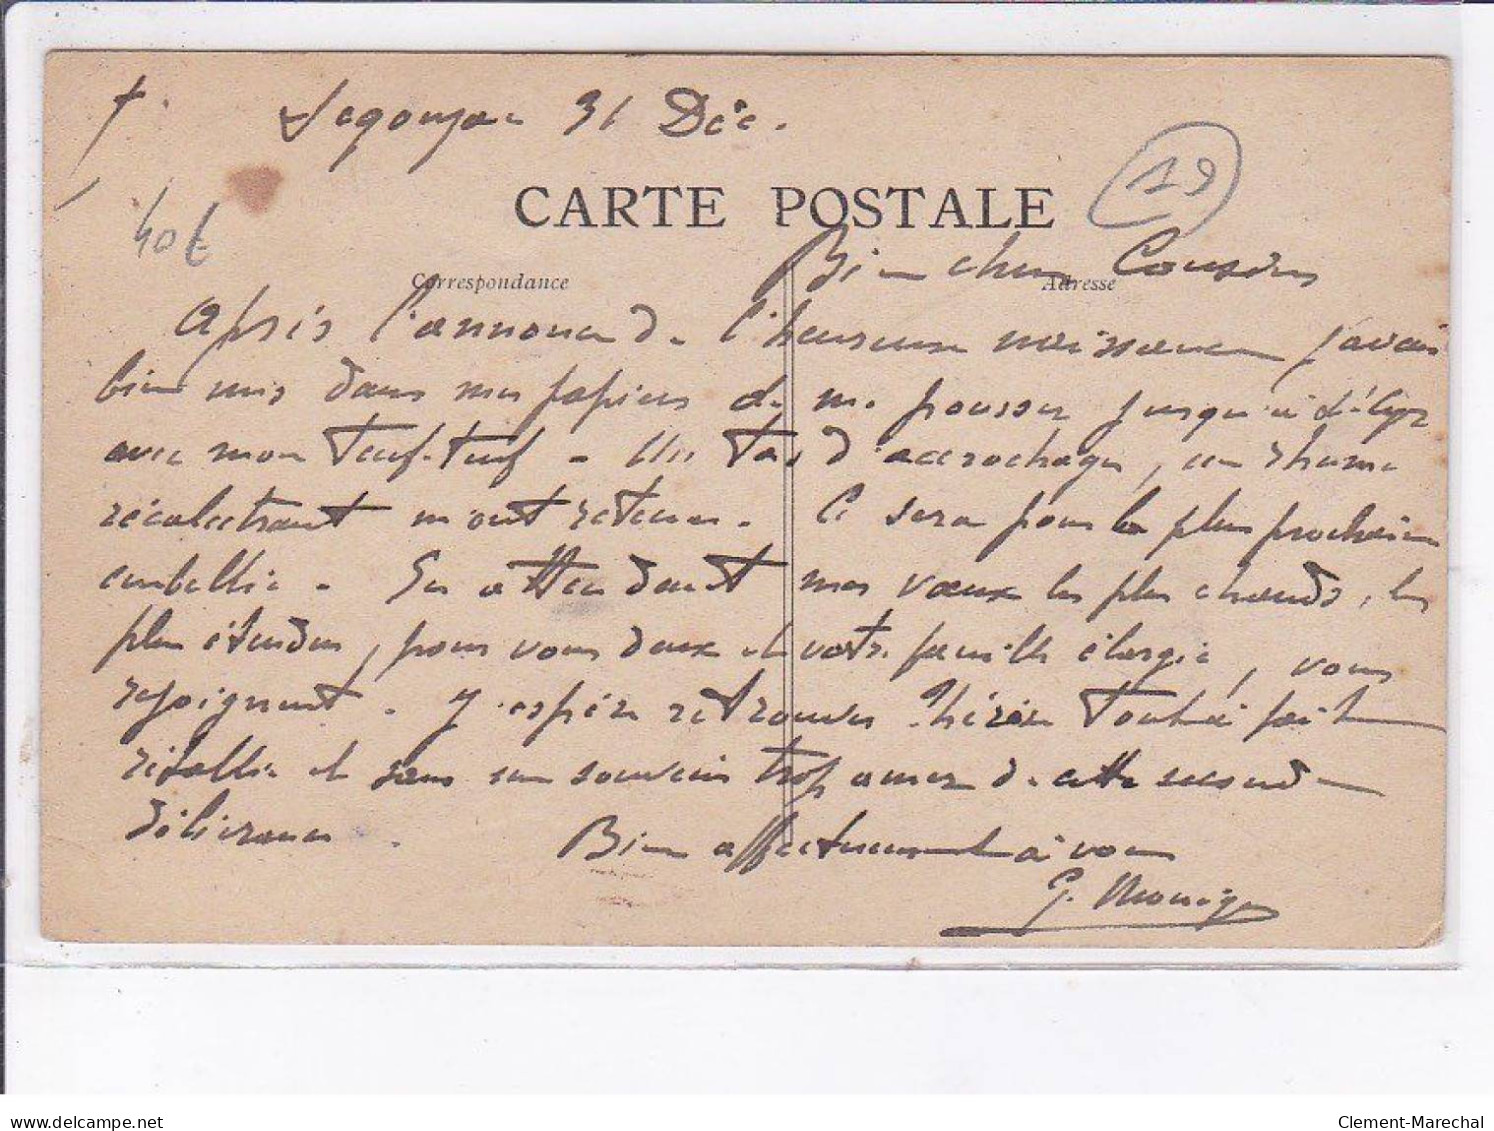 31 Déc.
19
CARTE POSTALE
40€
Bien chers Cousins
Correspondance
Adresse
Après l'annonce de l'heureuse naissance j'avais
bien mis dans mes papiers de me pousser jusqu'à
avec mon Teuf-Teuf - Un tas d'accrochages, un rhume
récalcitrant m'ont retenu. Ce sera pour la plus prochaine
embellie. En attendant mes vœux les plus chauds, les
plus étendus, pour vous deux et votre famille élargie, vous
rejoignent. J'espère retrouver tout à fait
rétablie et sans un souvenir trop amer de cette seconde
délivrance. Bien affectueusement à vous
G.
Clement-Marechal
delcampe.net